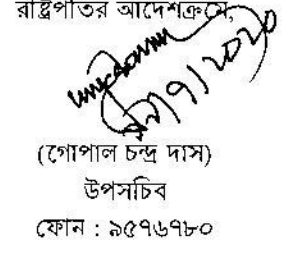 রাষ্ট্রপতির আদেশক্রমে,
(গোপাল চন্দ্র দাস)
উপসচিব
ফোন : ৯৫৭৬৭৮০